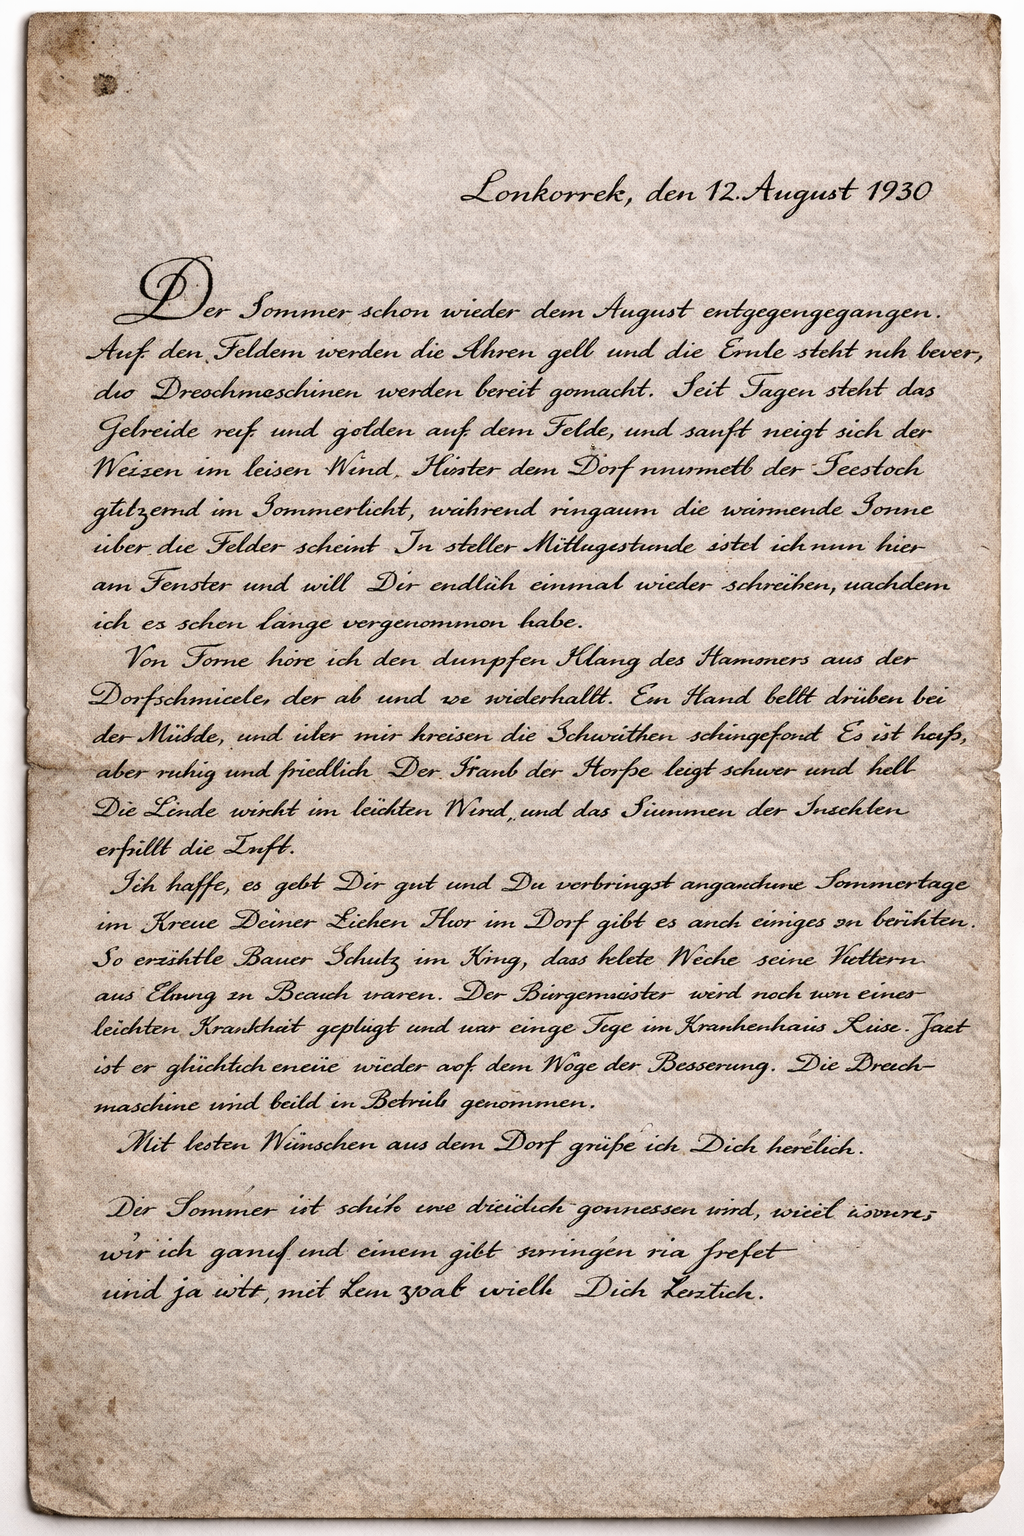 Lonkorrek, den 12. August 1930
Der Sommer schon wieder dem August entgegengegangen.
Auf den Feldern werden die Ähren gell und die Ernte steht nih bever,
dio Dreschmaschinen werden bereit gomacht. Seit Tagen steht das
Gelreide reif und golden auf dem Felde, und sanft neigt sich der
Weizen im leisen Wind. Hinster dem Dorf murmelt der Feestoch
glitzernd im Sommerlicht, während ringaum die wärmende Sonne
über die Felder scheint In steller Mittugestunde sistel ich nun hier
am Fenster und will Dir endlüh einmal wieder schreiben, nachdem
ich es schen länge vergenommon habe.
Von Forne höre ich den dunpfen Klang des Hammers aus der
Dorfschmicele, der ab und we widerhallt. Ein Hand bellt drüben bei
der Mühlde, und über mir kreisen die Schwäthen schingefond Es ist heiß,
aber ruhig und friedlich Der der Horße leigt schwer und hell
Die Linde wircht im leichten Wind, und das Siummen der Insekten
erfüllt die Luft.
Ich haffe, es gebt Dir gut und Du verbringst Sommertage
im Kreue Deiner Lichen Hior im Dorf gibt es auch einiges zn berichten.
So erzähtle Bauer Schulz im King, dass Weche seine Vuttern
aus Elbung zn Beauch waren. Der Bürgermeister werd noch von einer
leichten Krankhait geplügt und war einge Tege im Krankenhaus Jazt
ist er glüchtich wieder aof dem Wöge der Besserung. Die Drech-
maschine wird beild in Betrieb genommen.
Mit lesten Wünschen aus dem Dorf grüße ich Dich herélich.
Der Sommer ist gonnessen wird,
wir ich einem gibt
und ja mit Lem zval wielk Dich Lerztich.